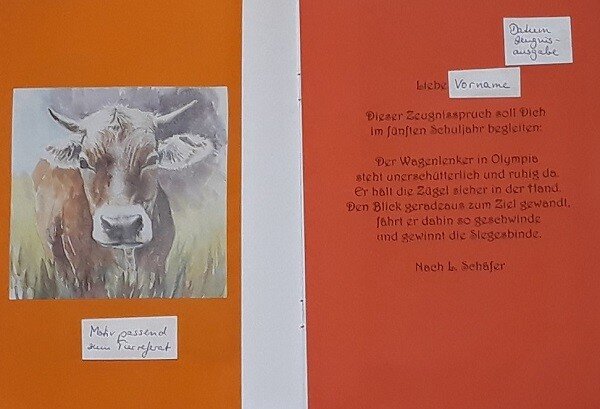 Motiv passend
zum Tierreferat
Datum
Zeugnis-
ausgabe
Liebe Vorname
Dieser Zeugnisspruch soll Dich
im fünften Schuljahr begleiten:
Der Wagenlenker in Olympia
steht unerschütterlich und ruhig da.
Er hält die Zügel sicher in der Hand.
Den Blick geradeaus zum Ziel gewandt,
fährt er dahin so geschwinde
und gewinnt die Siegesbinde.
Nach L. Schäfer